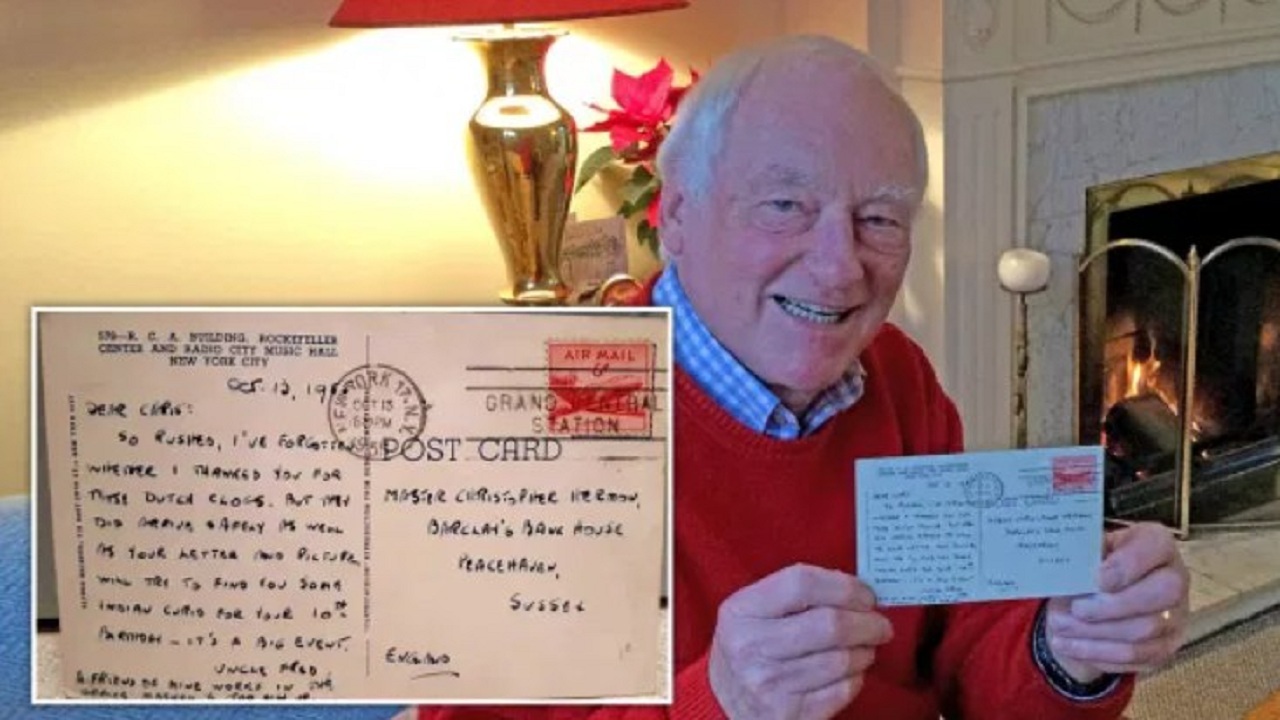 579—R. C. A. BUILDING, ROCKEFELLER
CENTER AND RADIO CITY MUSIC HALL
NEW YORK CITY
OCT. 13, 195
DEAR CHRIS:
SO RUSHED, I'VE FORGOTTEN
WHETHER I THANKED YOU FOR
THOSE DUTCH CLOGS. BUT THEY
DID ARRIVE SAFELY AS WELL
AS YOUR LETTER AND PICTURE
WILL TRY TO FIND YOU SOME
INDIAN CURIO FOR YOUR 10TH
BIRTHDAY — IT'S A BIG EVENT.
UNCLE FRED
A FRIEND OF MINE WORKS IN THE
NEW YORK 17, N.Y.
OCT 13
PM
AIR MAIL
6¢
GRAND CENTRAL
STATION
POST CARD
MASTER CHRISTOPHER HERMON,
BARCLAY'S BANK HOUSE
PEACEHAVEN,
SUSSEX
ENGLAND